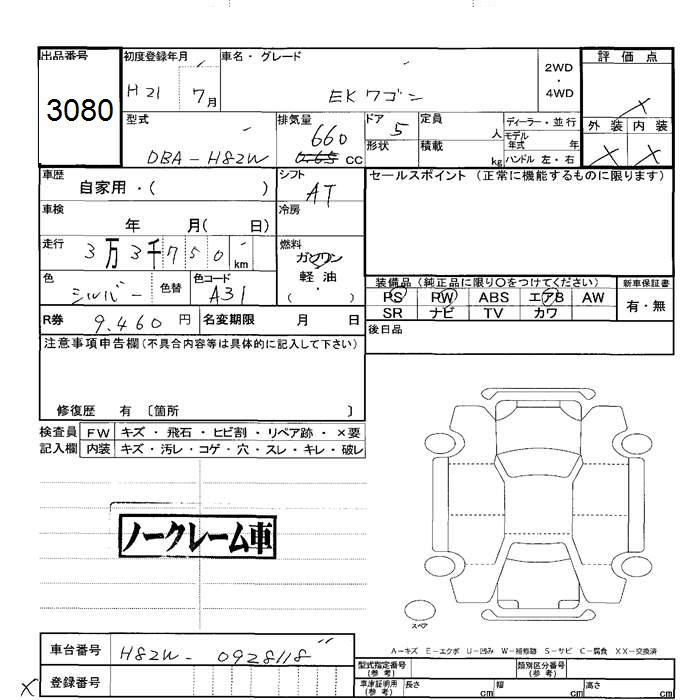 出品番号
3080
初度登録年月
H21 7月
車名・グレード
EKワゴン
2WD
・
4WD
評価点
×
外装 内装
× ×
型式
DBA-H82W
排気量
660
0.65 CC
ドア
5
形状
定員
人
積載
kg
ディーラー・並行
モデル
年式 年
ハンドル 左・右
車歴
自家用・( )
シフト
AT
セールスポイント (正常に機能するものに限ります)
車検
年 月( 日)
冷房
走行
3万3千750 km
燃料
ガソリン
軽・油
( )
色
シルバー
色替
色コード
A31
装備品 (純正品に限り○をつけてください)
PS PW ABS エアB AW
SR ナビ TV カワ
新車保証書
有・無
R券 9,460 円
名変期限 月 日
後日品
注意事項申告欄(不具合内容等は具体的に記入して下さい)
修復歴 有 〔箇所 〕
検査員
記入欄
FW キズ・飛石・ヒビ割・リペア跡・×要
内装 キズ・汚レ・コゲ・穴・スレ・キレ・破レ
ノークレーム車
スペア
A−キズ E−エクボ U−凹み W−補修跡 S−サビ C−腐食 XX−交換済
車台番号 H82W-0928118
× 登録番号
型式指定番号
(参考)
類別区分番号
(参考)
車庫証明用
(参考)
長さ cm 幅 cm 高さ cm